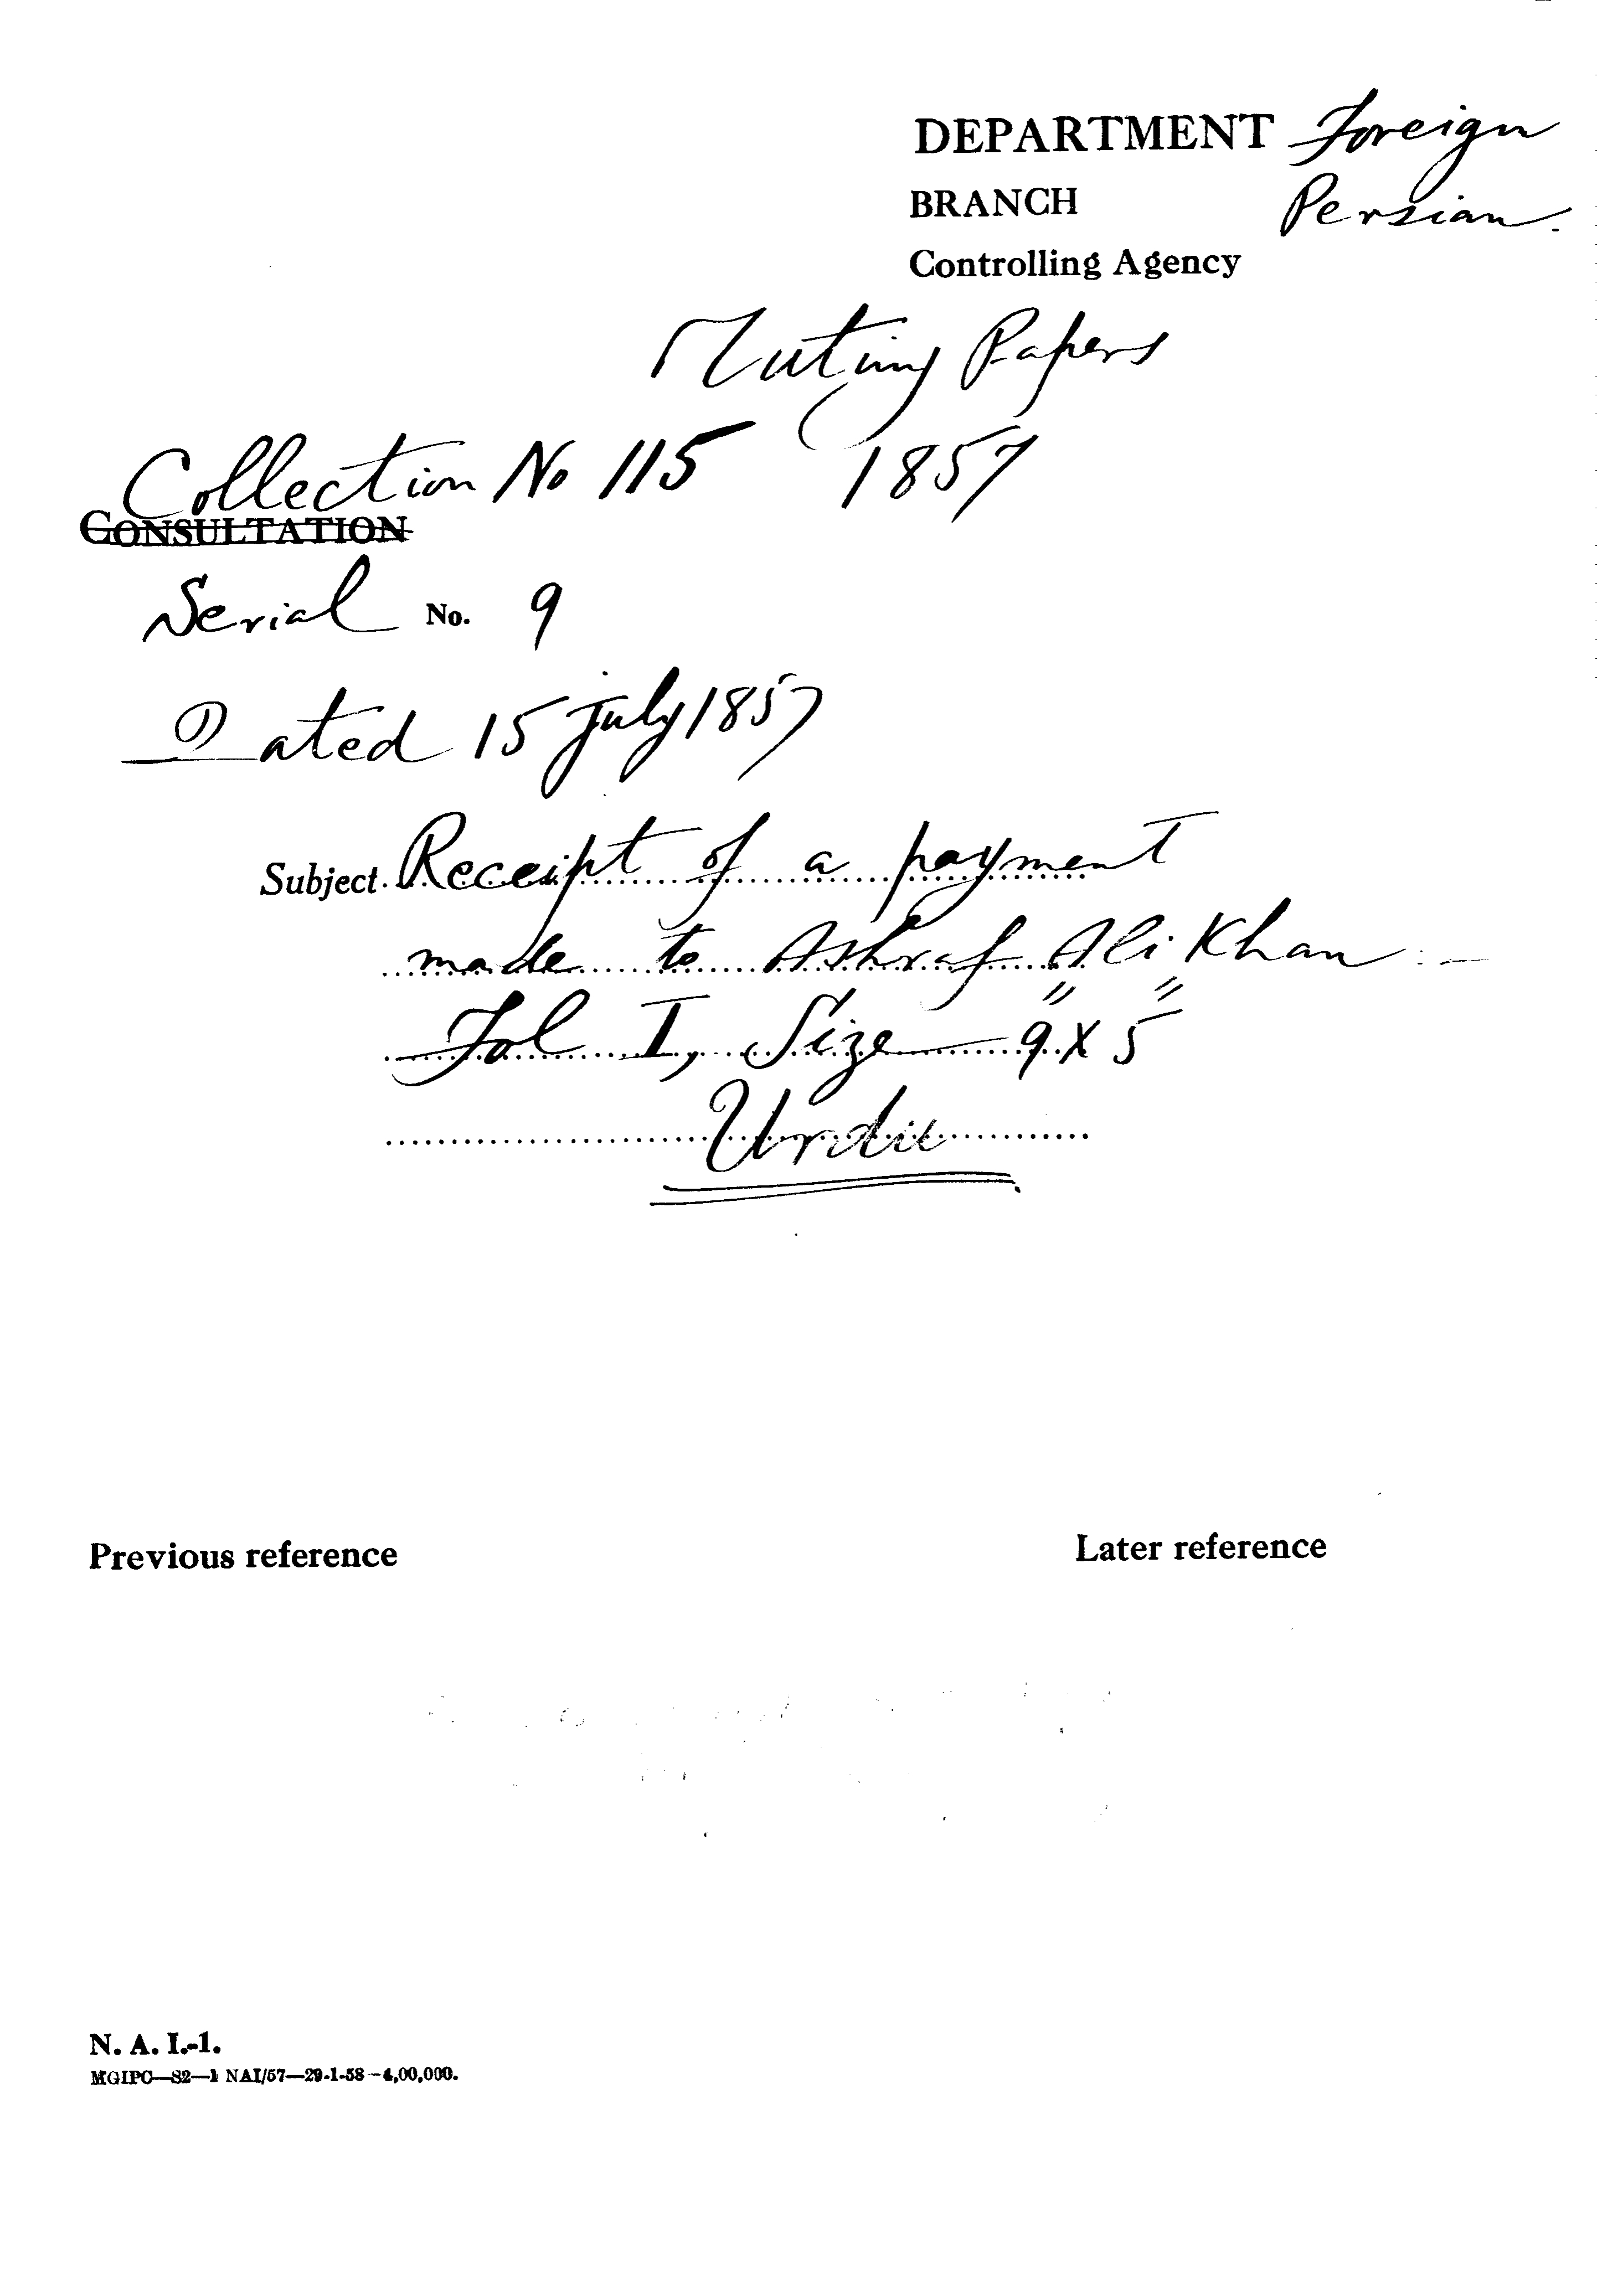 DEPARTMENT Foreign
BRANCH Persian.
Controlling Agency
Mutiny Papers
Collection No 115 1857
CONSULTATION
Serial No. 9
Dated 15 July 1857
Subject. Receipt of a payment
made to Ashraf Ali Khan :-
Fol I, Size — 9" X 5"
Urdu
Previous reference Later reference
N. A. I.-1.
MGIPC—S2—1 NAI/57—29-1-58—4,00,000.